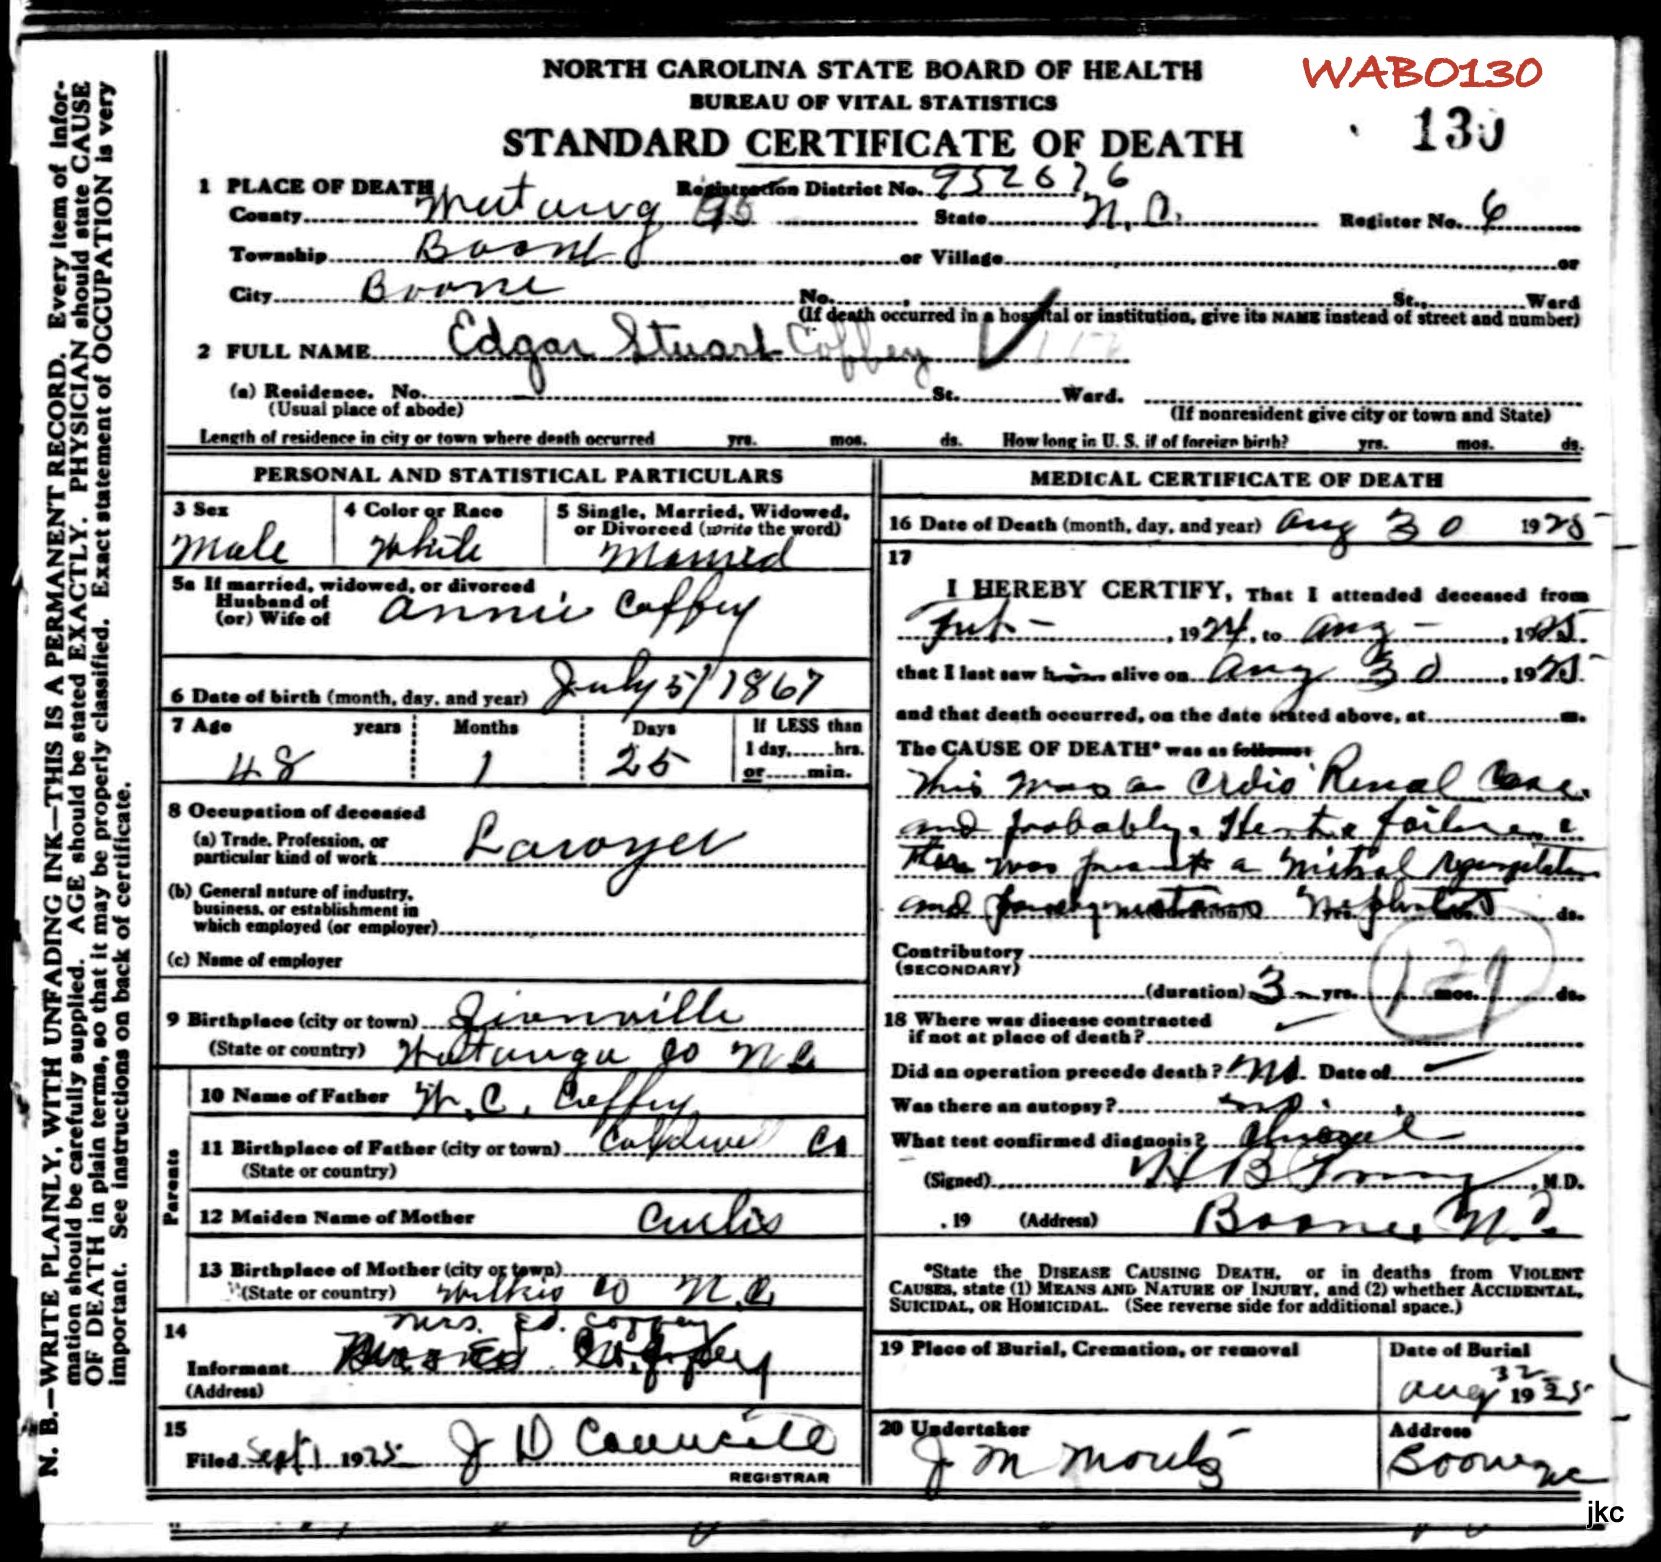 WABO130
NORTH CAROLINA STATE BOARD OF HEALTH
BUREAU OF VITAL STATISTICS
STANDARD CERTIFICATE OF DEATH
130
1 PLACE OF DEATH
Registration District No. 952676
County Watauga 95 State N.C. Register No. 6
Township Boone or Village or
City Boone No. , St., Ward
(If death occurred in a hospital or institution, give its NAME instead of street and number)
2 FULL NAME Edgar Stuart Coffey
(a) Residence. No. St. Ward.
(Usual place of abode) (If nonresident give city or town and State)
Length of residence in city or town where death occurred yrs. mos. ds. How long in U. S. if of foreign birth? yrs. mos. ds.
PERSONAL AND STATISTICAL PARTICULARS
3 Sex
Male
4 Color or Race
White
5 Single, Married, Widowed,
or Divorced (write the word)
Married
5a If married, widowed, or divorced
Husband of
(or) Wife of
Annie Coffey
6 Date of birth (month, day, and year) July 5/1867
7 Age years Months Days If LESS than
1 day,......hrs.
or......min.
48 1 25
8 Occupation of deceased
(a) Trade, Profession, or
particular kind of work Lawyer
(b) General nature of industry,
business, or establishment in
which employed (or employer)
(c) Name of employer
9 Birthplace (city or town)
(State or country) Watauga Co N C
Parents
10 Name of Father W. C. Coffey
11 Birthplace of Father (city or town) Caldwell Co
(State or country)
12 Maiden Name of Mother Curtis
13 Birthplace of Mother (city or town)
(State or country) Wilkes Co N.C.
14
Mrs. Ed. Coffey
Informant Coffey
(Address)
15
Filed Sept 1 1925 J D Councill
REGISTRAR
MEDICAL CERTIFICATE OF DEATH
16 Date of Death (month, day, and year) Aug 30 1925
17
I HEREBY CERTIFY, That I attended deceased from
1924, to Aug - , 1925
that I last saw him alive on Aug 30 , 1925
and that death occurred, on the date stated above, at m.
The CAUSE OF DEATH* was as follows:
This was a Crdio Renal Case.
and probably. Heart failure
There was present a Mitral regurgitation
and Nephritis
(duration) yrs. mos. ds.
Contributory
(SECONDARY)
(duration) 3 yrs. mos. ds.
129
18 Where was disease contracted
if not at place of death?
Did an operation precede death? No. Date of
Was there an autopsy? no
What test confirmed diagnosis?
(Signed) H B , M.D.
, 19 (Address) Boone, N.C.
*State the DISEASE CAUSING DEATH, or in deaths from VIOLENT
CAUSES, state (1) MEANS AND NATURE OF INJURY, and (2) whether ACCIDENTAL,
SUICIDAL, OR HOMICIDAL. (See reverse side for additional space.)
19 Place of Burial, Cremation, or removal
Date of Burial
Aug 1925
20 Undertaker
J M Moretz
Address
Boone NC
N. B.—WRITE PLAINLY, WITH UNFADING INK—THIS IS A PERMANENT RECORD. Every item of infor-
mation should be carefully supplied. AGE should be stated EXACTLY. PHYSICIAN should state CAUSE
OF DEATH in plain terms, so that it may be properly classified. Exact statement of OCCUPATION is very
important. See instructions on back of certificate.
jkc